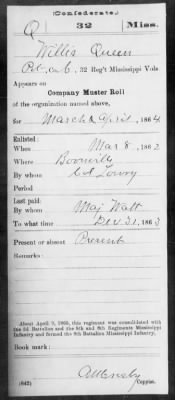 (Confederate.)
Q 32 Miss.
Willis Queen
Pvt, Co C, 32 Reg't Mississippi Vols.
Appears on
Company Muster Roll
of the organization named above,
for March & April, 1864
Enlisted:
When Mar 8, 1862
Where Booneville
By whom Col Lowry
Period
Last paid:
By whom Maj Watt
To what time Dec 31, 1863
Present or absent Present
Remarks:
About April 9, 1865, this regiment was consolidated with
the 3d Battalion and the 5th and 8th Regiments Mississippi
Infantry and formed the 8th Battalion Mississippi Infantry.
Book mark:
(642)
Copyist.